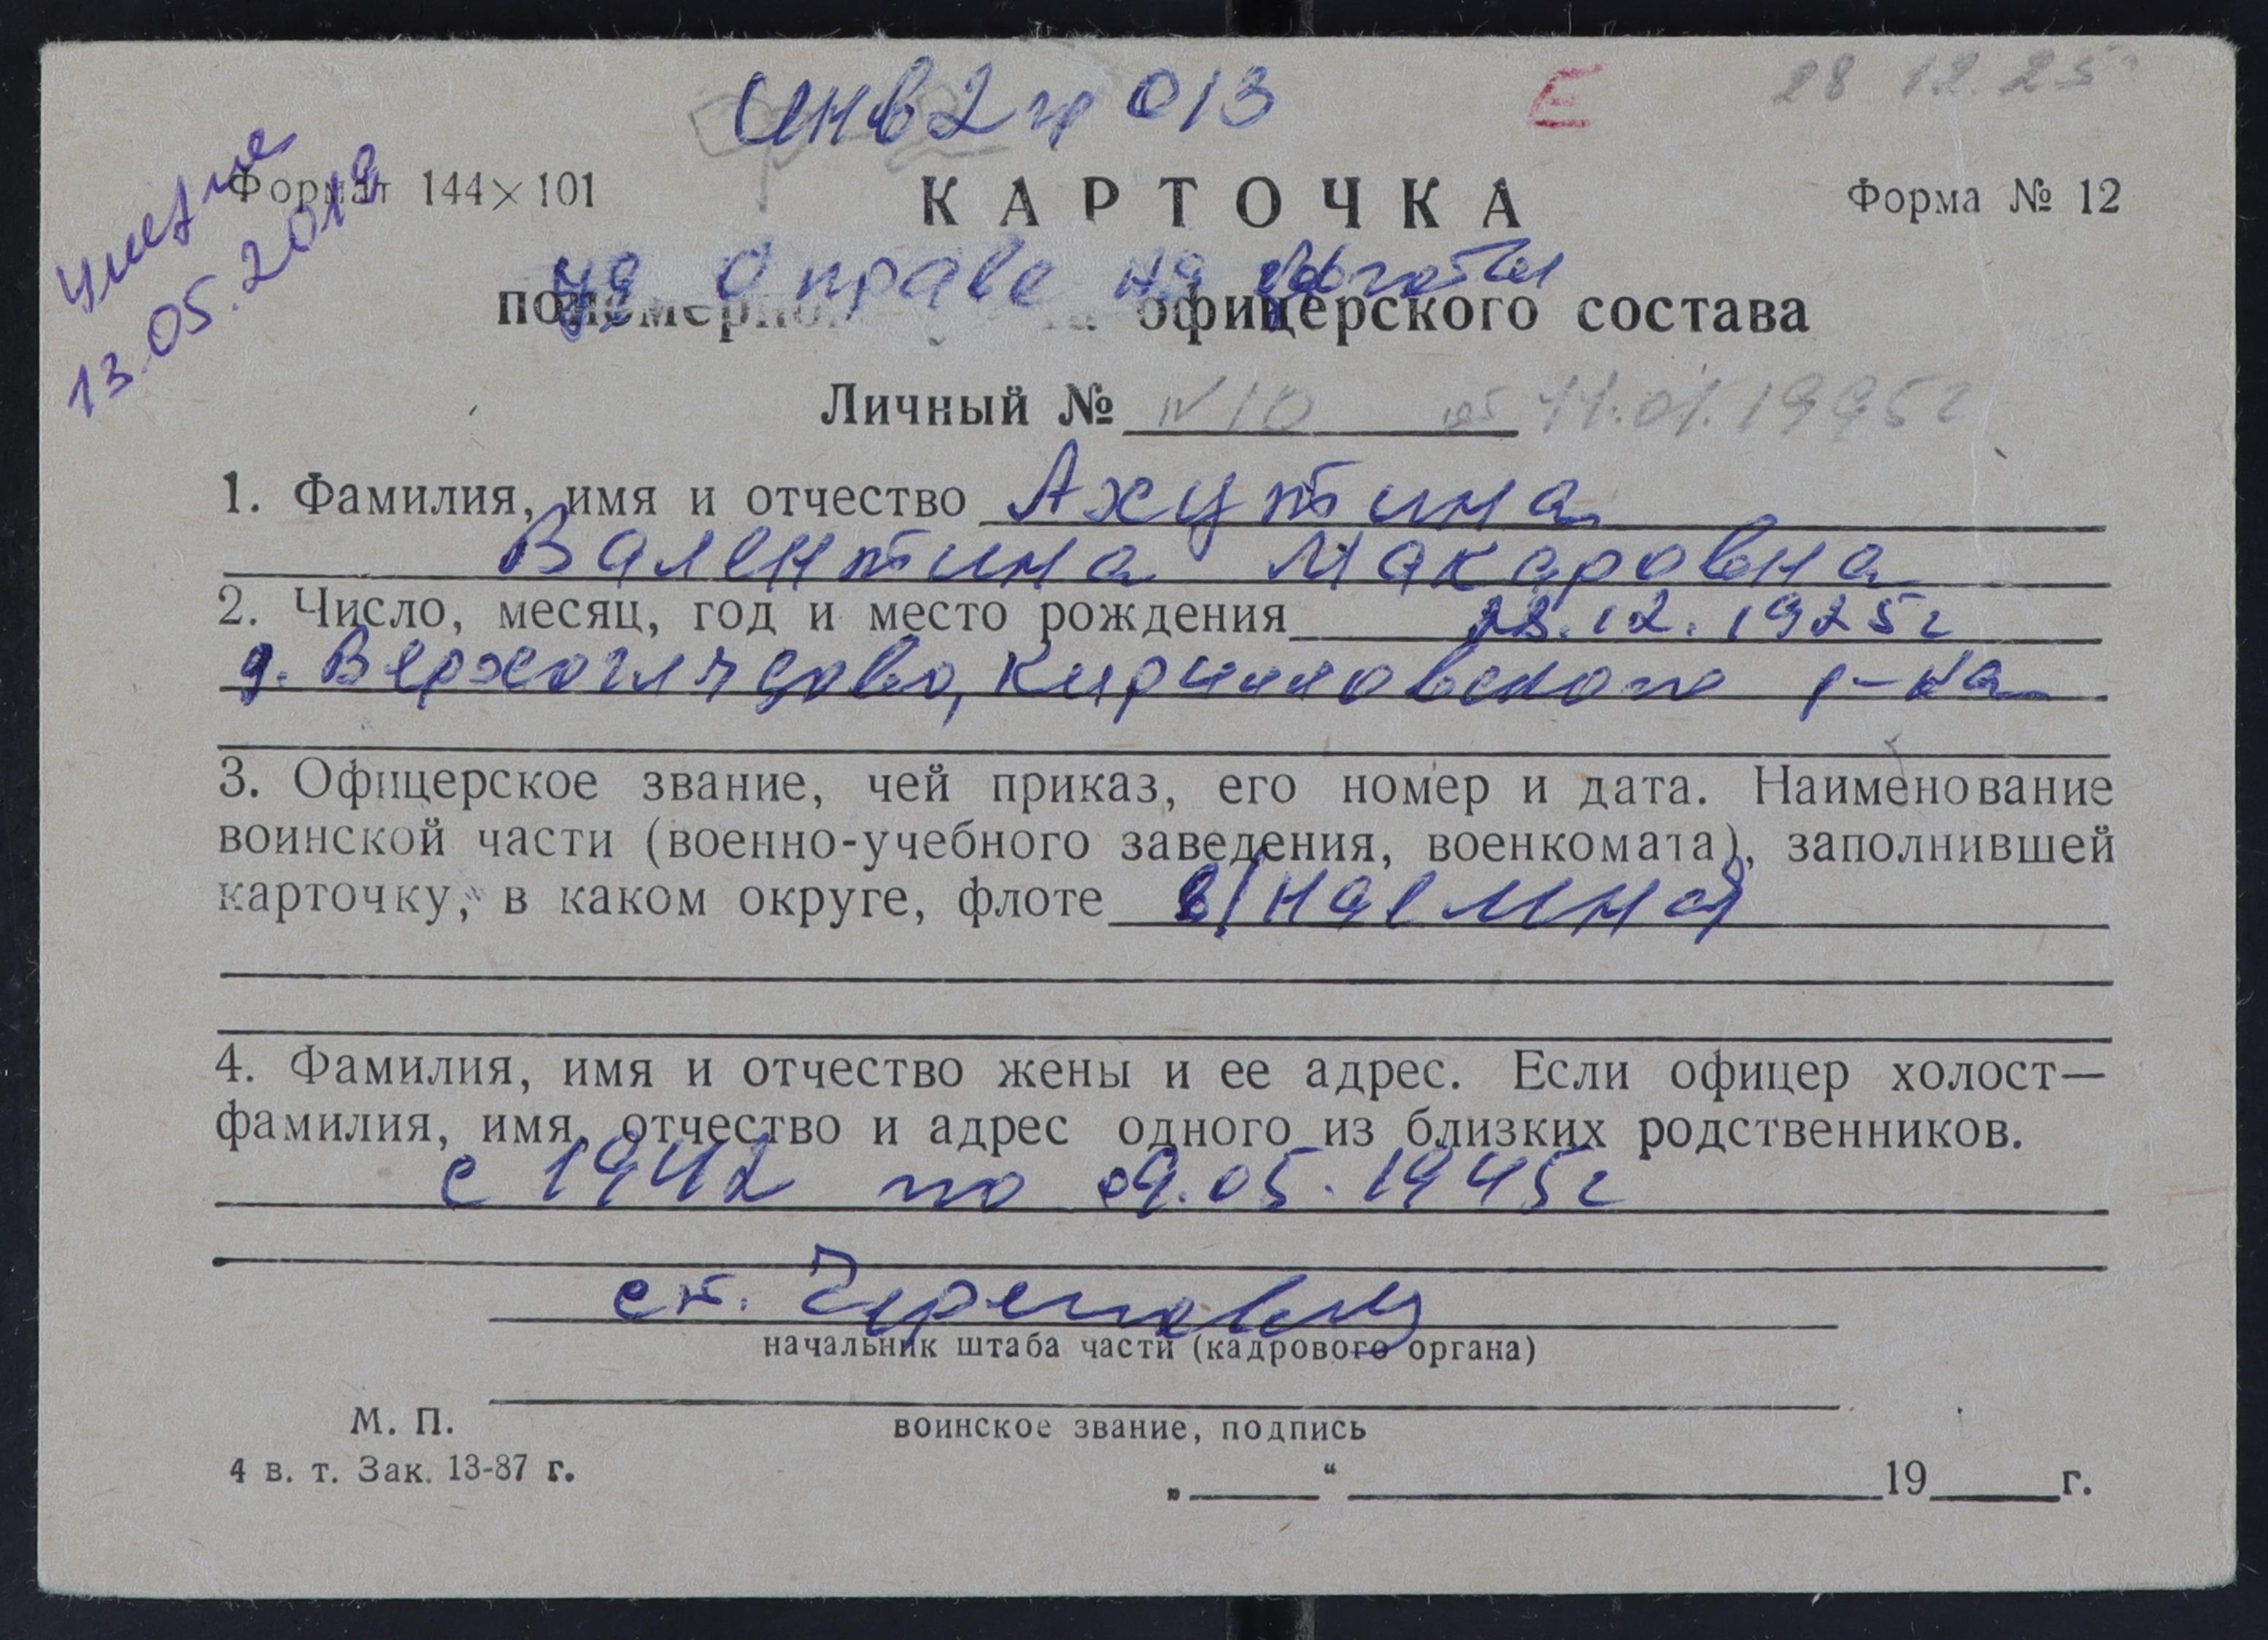 Инв 2 гр 013 Е 28 12 25
умерла
13.05.2019
Формат 144×101 КАРТОЧКА Форма № 12
уд. о праве на льготы
офицерского состава
Личный № N 10 от 11.01.1995г
1. Фамилия, имя и отчество Ахутина
Валентина Макаровна
2. Число, месяц, год и место рождения 28.12.1925г
д. Верхоглядово, Кирилловского р-на
3. Офицерское звание, чей приказ, его номер и дата. Наименование
воинской части (военно-учебного заведения, военкомата), заполнившей
карточку, в каком округе, флоте в/наемная
4. Фамилия, имя и отчество жены и ее адрес. Если офицер холост—
фамилия, имя, отчество и адрес одного из близких родственников.
с 1942 по 09.05.1945г
ст. Череповец
начальник штаба части (кадрового органа)
М. П.
воинское звание, подпись
4 в. т. Зак. 13-87 г.
„____“ ________ 19___г.